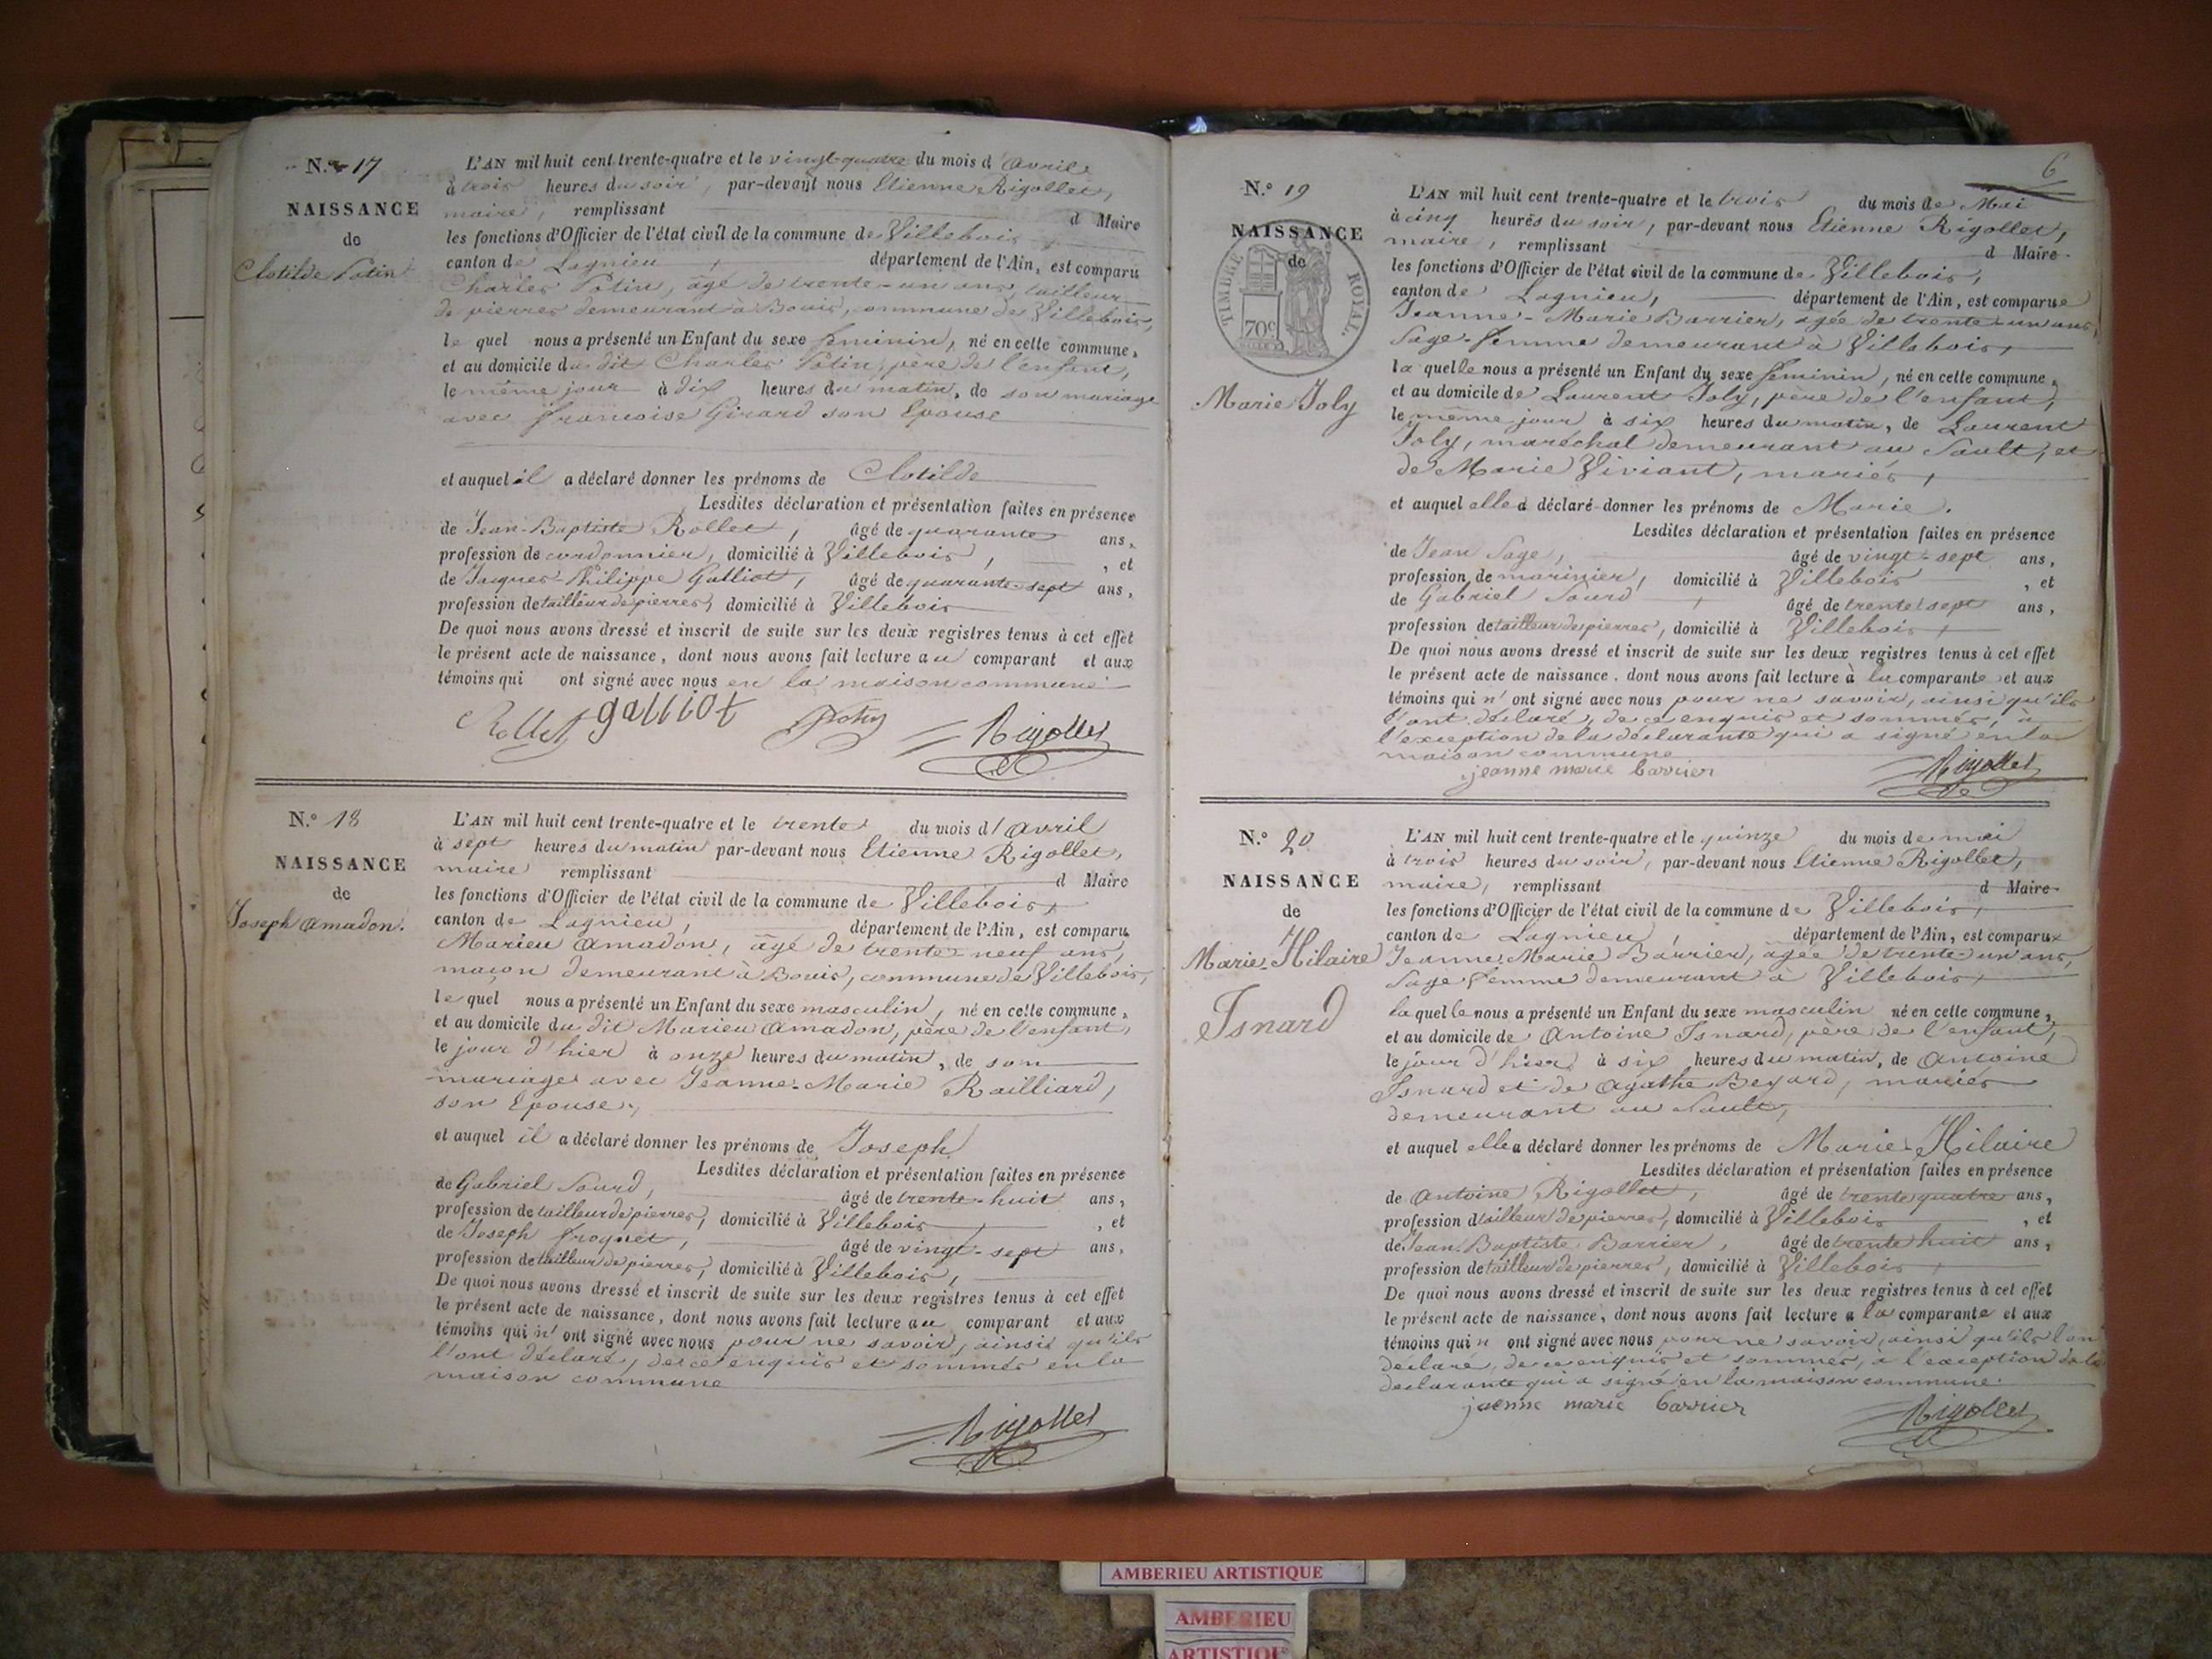 N.º 17
NAISSANCE
de
Clotilde Potin
L'AN mil huit cent trente-quatre et le vingt-quatre du mois d'Avril
à trois heures du soir, par-devant nous Etienne Rigollet,
maire, remplissant d Maire
les fonctions d'Officier de l'état civil de la commune de Villebois
canton de Lagnieu, département de l'Ain, est comparu
Charles Potin, âgé de trente-un ans, tailleur
de pierres demeurant à Bouis, commune de Villebois,
le quel nous a présenté un Enfant du sexe féminin, né en cette commune,
et au domicile du dit Charles Potin, père de l'enfant,
le même jour à dix heures du matin, de son mariage
avec françoise Girard son Epouse
et auquel il a déclaré donner les prénoms de Clotilde
Lesdites déclaration et présentation faites en présence
de Jean-Baptiste Rollet, âgé de quarante ans,
profession de cordonnier, domicilié à Villebois, , et
de Jacques-Philippe Galliot, âgé de quarante-sept ans,
profession de tailleur de pierres, domicilié à Villebois
De quoi nous avons dressé et inscrit de suite sur les deux registres tenus à cet effet
le présent acte de naissance, dont nous avons fait lecture au comparant et aux
témoins qui ont signé avec nous en la maison commune
Rollet galliot Potin Rigollet
N.º 18
NAISSANCE
de
Joseph Amadon.
L'AN mil huit cent trente-quatre et le trente du mois d'Avril
à sept heures du matin par-devant nous Etienne Rigollet,
maire remplissant d Maire
les fonctions d'Officier de l'état civil de la commune de Villebois,
canton de Lagnieu, département de l'Ain, est comparu
Marieu Amadon, âgé de trente-neuf ans,
maçon demeurant à Bouis, commune de Villebois,
le quel nous a présenté un Enfant du sexe masculin, né en cette commune,
et au domicile du dit Marieu Amadon, père de l'enfant,
le jour d'hier à onze heures du matin, de son
mariage avec Jeanne-Marie Railliard,
son Epouse,
et auquel il a déclaré donner les prénoms de Joseph
Lesdites déclaration et présentation faites en présence
de Gabriel Sourd, âgé de trente-huit ans,
profession de tailleur de pierres, domicilié à Villebois, , et
de Joseph froquet, âgé de vingt-sept ans,
profession de tailleur de pierres, domicilié à Villebois,
De quoi nous avons dressé et inscrit de suite sur les deux registres tenus à cet effet
le présent acte de naissance, dont nous avons fait lecture au comparant et aux
témoins qui n'ont signé avec nous pour ne savoir, ainsi qu'ils
l'ont déclaré, de ce enquis et sommés en la
maison commune
Rigollet
6
N.º 19
NAISSANCE
de
TIMBRE ROYAL.
70c
Marie Joly
L'AN mil huit cent trente-quatre et le trois du mois de Mai
à cinq heures du soir, par-devant nous Etienne Rigollet,
maire, remplissant d Maire
les fonctions d'Officier de l'état civil de la commune de Villebois,
canton de Lagnieu, département de l'Ain, est comparue
Jeanne-Marie Barrier, agée de trente-un ans,
Sage-femme demeurant à Villebois,
la quelle nous a présenté un Enfant du sexe féminin, né en cette commune,
et au domicile de Laurent Joly, père de l'enfant,
le même jour à six heures du matin, de Laurent
Joly, maréchal demeurant au Sault, et
de Marie Viviant, mariés,
et auquel elle a déclaré donner les prénoms de Marie.
Lesdites déclaration et présentation faites en présence
de Jean Sage, âgé de vingt-sept ans,
profession de marinier, domicilié à Villebois , et
de Gabriel Sourd, âgé de trente-sept ans,
profession de tailleur de pierres, domicilié à Villebois,
De quoi nous avons dressé et inscrit de suite sur les deux registres tenus à cet effet
le présent acte de naissance, dont nous avons fait lecture à la comparante et aux
témoins qui n'ont signé avec nous pour ne savoir, ainsi qu'ils
l'ont déclaré, de ce enquis et sommés, à
l'exception de la déclarante qui a signé en la
maison commune
jeanne marie barrier Rigollet
N.º 20
NAISSANCE
de
Marie-Hilaire
Isnard
L'AN mil huit cent trente-quatre et le quinze du mois de mai
à trois heures du soir, par-devant nous Etienne Rigollet,
maire, remplissant d Maire
les fonctions d'Officier de l'état civil de la commune de Villebois,
canton de Lagnieu, département de l'Ain, est comparue
Jeanne-Marie Barrier, agée de trente-un ans,
Sage femme demeurant à Villebois,
laquelle nous a présenté un Enfant du sexe masculin né en cette commune,
et au domicile de Antoine Isnard, père de l'enfant,
le jour d'hier, à six heures du matin, de Antoine
Isnard et de Agathe Begard, mariés
demeurant au Sault,
et auquel elle a déclaré donner les prénoms de Marie-Hilaire
Lesdites déclaration et présentation faites en présence
de Antoine Rigollet, âgé de trente quatre ans,
profession d tailleur de pierres, domicilié à Villebois , et
de Jean-Baptiste Barrier, âgé de trente huit ans,
profession de tailleur de pierres, domicilié à Villebois,
De quoi nous avons dressé et inscrit de suite sur les deux registres tenus à cet effet
le présent acte de naissance, dont nous avons fait lecture a la comparante et aux
témoins qui n ont signé avec nous pour ne savoir, ainsi qu'ils l'on
declaré, de ce enquis et sommés, à l'exception de la
declarante qui a signé en la maison commune.
jaenne marie barrier Rigollet
AMBERIEU ARTISTIQUE
AMBERIEU
ARTISTIQUE